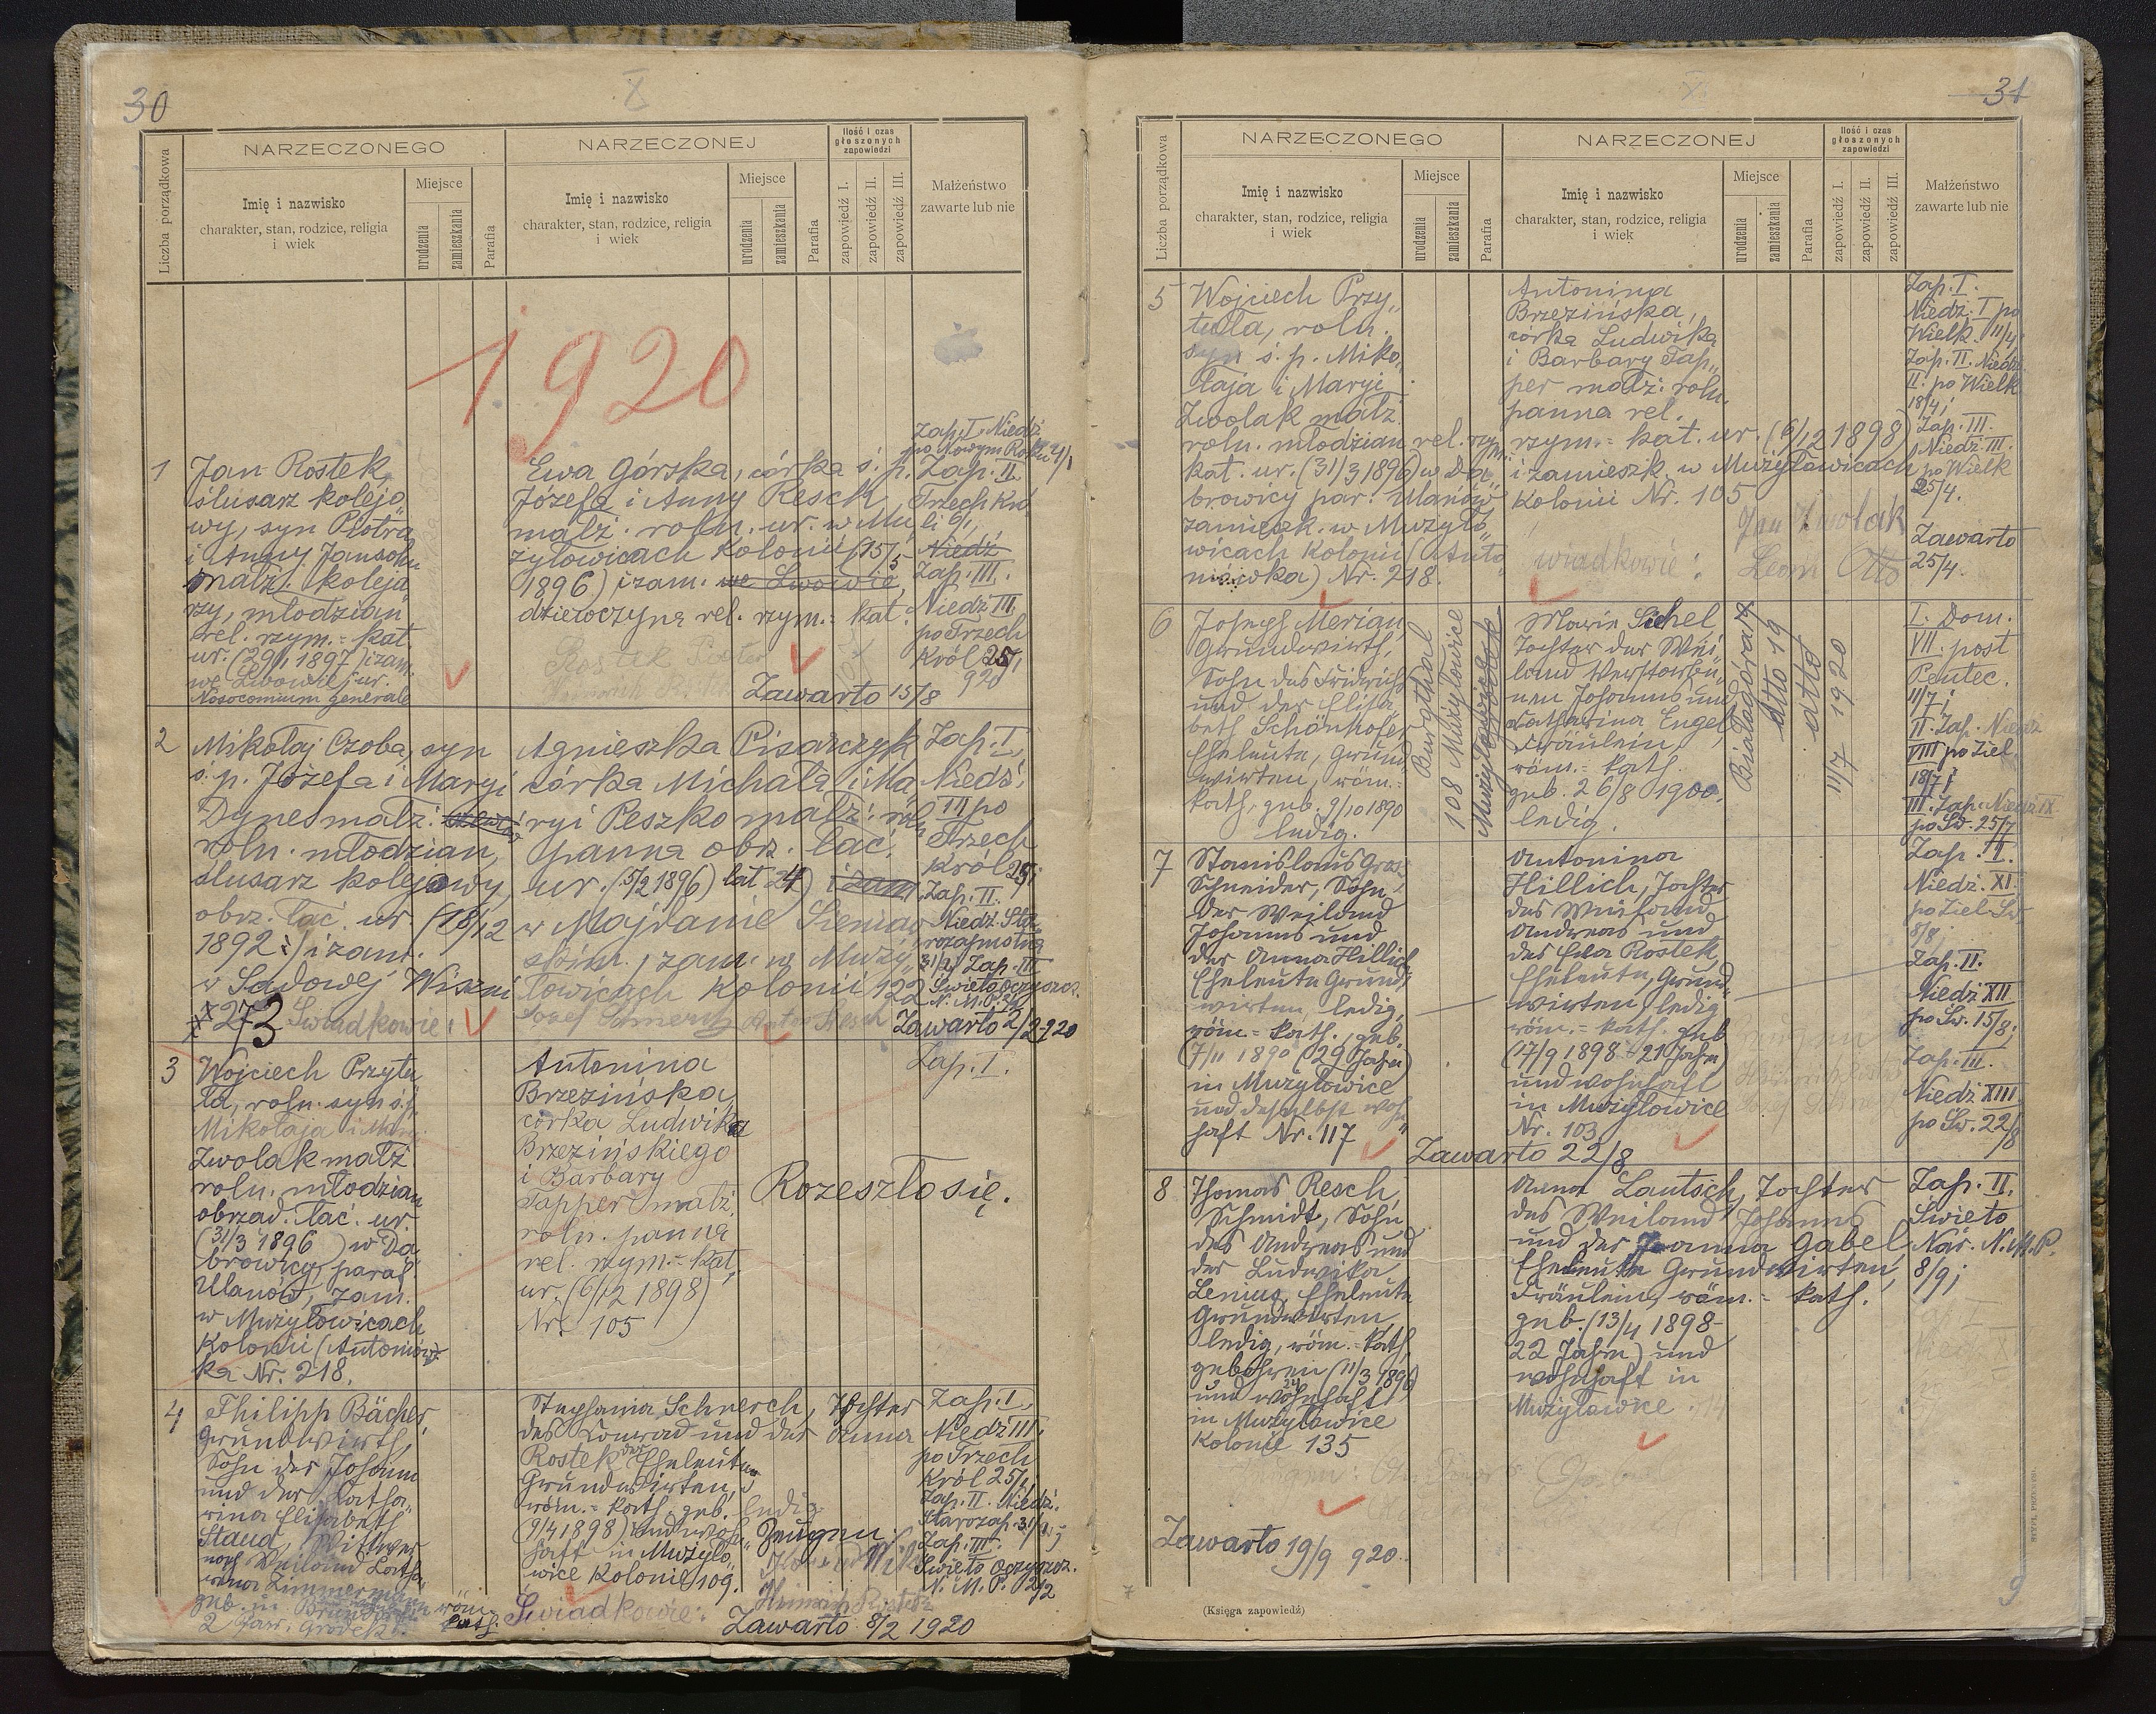 30
X
NARZECZONEGO
NARZECZONEJ
Ilość i czas głoszonych zapowiedzi
Liczba porządkowa
Imię i nazwisko
charakter, stan, rodzice, religia
i wiek
Miejsce
urodzenia
zamieszkania
Parafia
Imię i nazwisko
charakter, stan, rodzice, religia
i wiek
Miejsce
urodzenia
zamieszkania
Parafia
zapowiedź I.
zapowiedź II.
zapowiedź III.
Małżeństwo
zawarte lub nie
1920
1
Jan Rostek,
ślusarz kolejo„
wy, syn Piotra
i Anny Jansohn
małż. koleja„
rzy, młodzian
rel. rzym.= kat.
ur. (29/1 1897) i zam.
we Lwowie jur.
Nosocomium generale
Ewa Górska, córka ś. p.
Józefa i Anny Resch
małż. roln. ur. w Mu„
żyłowicach Kolonii (15/5
1896) i zam. we Lwowie,
dziewczyna rel. rzym.= kat.
Rostek Piotr
Zawarto 15/8
Zap. I. Niedz.
po Nowym Roku 4/1
Zap. II.
Trzech Kró
li 6/1
Niedź
Zap. III.
Niedź III
po Trzech
Król 25/1
920
2
Mikołaj Czoba, syn
ś. p. Józefa i Maryi
Dynes małż.
roln. młodzian,
ślusarz kolejowy,
obrz. łać. ur. (18/12
1892 :/ i zam.
w Sadowej Wiszni
# 273 Świadkowie:
Agnieszka Pisarczyk
córka Michała i Ma
ryi Peszko małż: roln
panna obrz. łać.
ur. (5/2 1896) lat 24) i zam
w Majdanie Sieniaw
skim. , zam. w Muży„
łowicach Kolonii 122
Zap. I.
Niedź.
III po
Trzech
Król 25/1
Zap. II.
Niedz. Sta„
rozapustna
31/1 Zap. III
Święto Oczyszcz.
N. M. P. 2/2
Zawarto 2/2 920
3
Wojciech Przytu„
ła, roln. syn ś. p.
Mikołaja i Maryi
Zwolak małż.
roln. młodzian
obrząd. łać. ur.
(31/3 1896 ) w Dą„
browicy paraf.
Ulanów, zam.
w Mużyłowicach
Kolonii (Antoniów„
ka Nr. 218.
Antonina
Brzezińska,
córka Ludwika
Brzezińskiego
i Barbary
Tapper małż.
roln. panna
rel. rzym.= kat.
ur. (6/12 1898)
Nr. 105
Rozeszło się.
Zap. I.
4
Philipp Bächer,
Grundwirth,
Sohn des Johann
und der Katha„
rina Elisabeth
Staud, Wittwer
nach Weiland Catha„
rina Zimmermann
2 Parr. Grodek.
röm. kath.
Stephania Schnerch, Tochter
des Konrad und der Anna
Rostek der Eheleuten
Grundwirten,
röm.= kath. geb. ledig
(9/4 1898) und wohn„
haft in Mużyło„
wice Kolonie 109.
Świadkowie:
Zeugen:
Heinrich Rostek
Zawarto 8/2 1920
Zap. I.
Niedź III.
po Trzech
Król 25/1
Zap. II. Niedź.
Starozap. 31/1;
Zap. III.
Święto Oczyszcz.
N. M. P. 2/2
31
X
NARZECZONEGO
NARZECZONEJ
Ilość i czas głoszonych zapowiedzi
Liczba porządkowa
Imię i nazwisko
charakter, stan, rodzice, religia
i wiek
Miejsce
urodzenia
zamieszkania
Parafia
Imię i nazwisko
charakter, stan, rodzice, religia
i wiek
Miejsce
urodzenia
zamieszkania
Parafia
zapowiedź I.
zapowiedź II.
zapowiedź III.
Małżeństwo
zawarte lub nie
5
Wojciech Przy„
tuła, roln.
syn ś. p. Miko„
łaja i Maryi
Zwolak małż.
roln. młodzian rel. rzym.
kat. ur. (31/3 1896) w Dą„
browicy par. Ulanów
zamieszk. w Mużyło„
wicach Kolonii (Anto„
niówka) Nr. 218.
Antonina
Brzezińska,
córka Ludwika
i Barbary Tap„
per małż. roln.
panna rel.
rzym.= kat. ur. (6/12 1898)
i zamieszk. w Mużyłowicach
Kolonii Nr. 105
Jan Zwolak
świadkowie: Leon Otto
Zap. I.
Niedź. I po
Wielk. 11/4;
Zap. II. Niedź.
II. po Wielk
18/4;
Zap. III.
Niedź III.
po Wielk
25/4.
Zawarto
25/4.
6
Joseph Merian,
Grundwirth,
Sohn des Friedrich
und der Elisa„
beth Schönhofer,
Eheleute, Grund„
wirten, röm.=
kath, geb. 9/10 1890
ledig.
Burgthal
108 Mużyłowice
Maria Sichel
Tochter der Wei„
land Verstorbe„
nen Johannes und
Catharina Engel,
Fräulein,
röm.= kath.
geb. 26/8 1900.
ledig.
Białagóra 19
dtto 19
dtto
11/7 1920
I. Dom.
VII. post
Pentec.
11/7;
II. Zap. Niedź
VIII po Ziel.
18/7;
III. Zap. Niedź IX
po Św. 25/7
7
Stanislaus Gross
Schneider, Sohn
der Weiland
Johannes und
der Anna Hillich
Eheleute Grund„
wirten, ledig,
röm.= kath., geb.
(7/11 1890 (29 Jahre)
in Mużyłowice
und daselbst wohn„
haft Nr. 117
Antonina
Hillich, Tochter
des Weiland
Andreas und
der Eva Rostek,
Eheleute, Grund„
wirten, ledig
röm.= kath. geb
(17/9 1898 - 21 Jahre)
und wohnhaft
in Mużyłowice
Nr. 103
Zawarto 22/8
Zap. I.
Niedź. XI.
po Ziel Św.
8/8;
Zap. II.
Niedź XII
po Św. 15/8;
Zap. III.
Niedź XIII.
po Św. 22/8
8
Thomas Resch,
Schmidt, Sohn
des Andreas und
der Ludwika
Lenius, Eheleute
Grundwirten,
ledig, röm.= kath,
gebohren (11/3 1896)
und wohnhaft
in Mużyłowice
Kolonie 135
Anna Lautsch, Tochter
des Weiland Johannes
und der Joanna Gabel,
Eheleute Grundwirten,
Fräulein, röm.= kath.
geb. (13/4 1898-
22 Jahre) und
wohnhaft in
Mużyłowice.
Zap. II.
Święto
Nar. N. M. P.
8/9;
Zawarto 19/9 920.
(Księga zapowiedź)
9